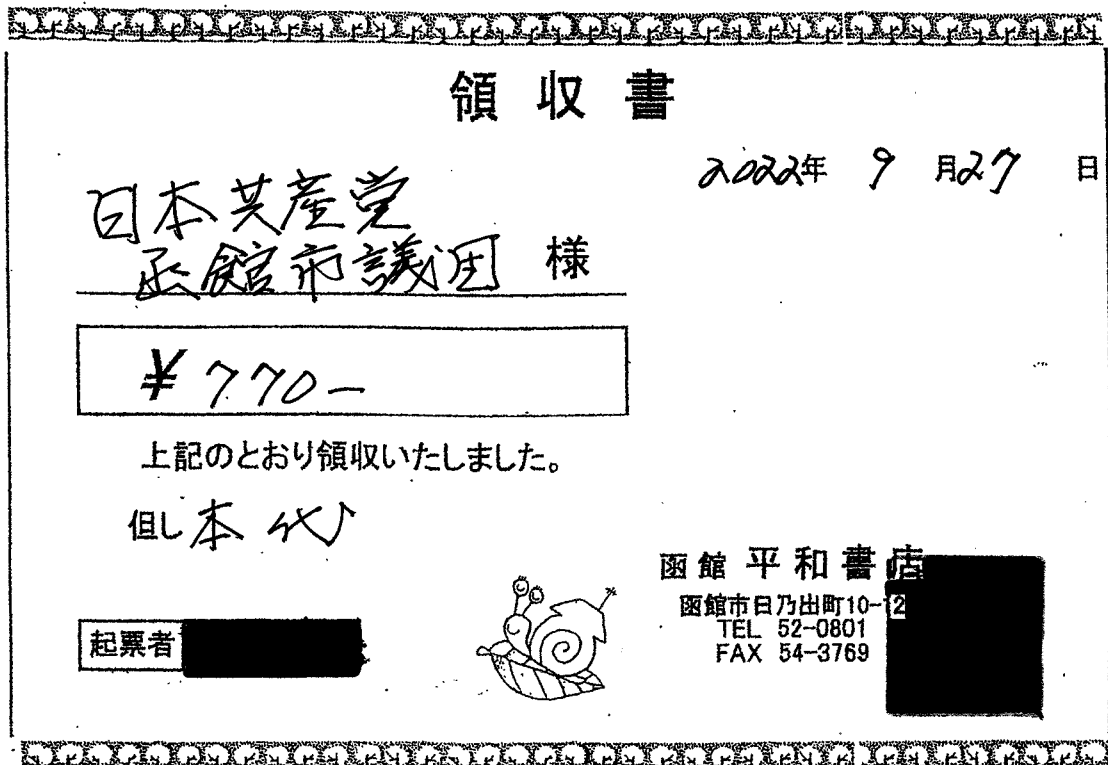 領収書
2022年 9月27日
日本共産党
函館市議団 様
¥770-
上記のとおり領収いたしました。
但し 本代
函館 平和書店
函館市日乃出町10-12
TEL 52-0801
FAX 54-3769
起票者